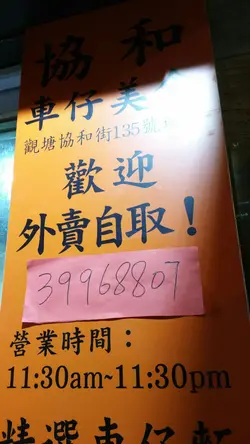 協和
車仔美食
觀塘協和街135號
歡迎
外賣自取！
39968807
營業時間：
11:30am~11:30pm
精選車仔麵